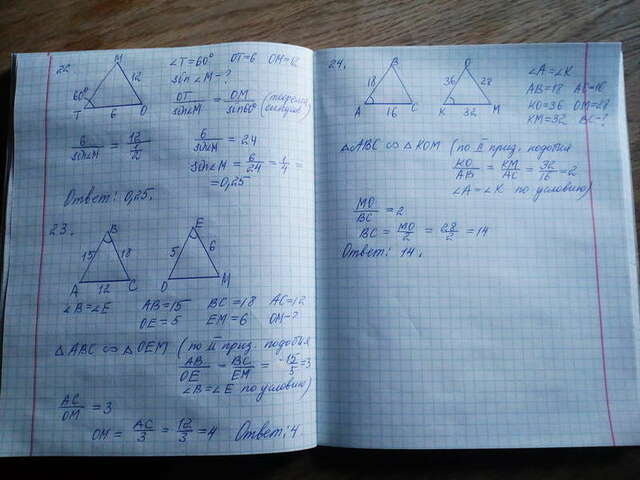 22.
M
12
60°
T 6 O
∠T=60° OT=6 OM=12
sin∠M-?
OT/sin∠M = OM/sin60° (теорема синусов)
6/sin∠M = 12/(1/2)
6/sin∠M = 24
sin∠M = 6/24 = 1/4 =
=0,25
Ответ: 0,25.
23.
B E
15 18 5 6
A 12 C O M
∠B=∠E AB=15 BC=18 AC=12
OE=5 EM=6 OM-?
△ABC ∽ △OEM (по II приз. подобия
AB/OE = BC/EM = 15/5 = 3
∠B=∠E по условию)
AC/OM = 3
OM = AC/3 = 12/3 = 4 Ответ: 4.
24.
B O
18 36 28
A 16 C K 32 M
∠A=∠K
AB=18 AC=16
KO=36 OM=28
KM=32 BC-?
△ABC ∽ △KOM (по II приз. подобия
KO/AB = KM/AC = 32/16 = 2
∠A=∠K по условию)
MO/BC = 2
BC = MO/2 = 28/2 = 14
Ответ: 14.